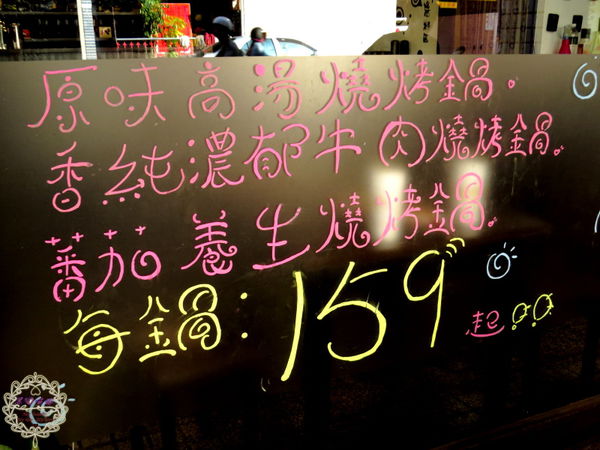 原味高湯燒烤鍋。
香純濃郁牛肉燒烤鍋。
蕃茄養生燒烤鍋。
每鍋：159起